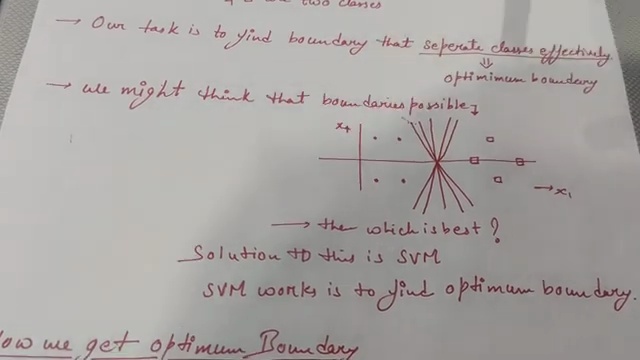 two classes
→ Our task is to find boundary that seperate classes effectively.
⇓
optimimum boundary
→ we might think that boundaries possible
x₂
→ x₁
→ then which is best?
Solution to this is SVM
SVM works is to find optimum boundary.
How we get optimum Boundary